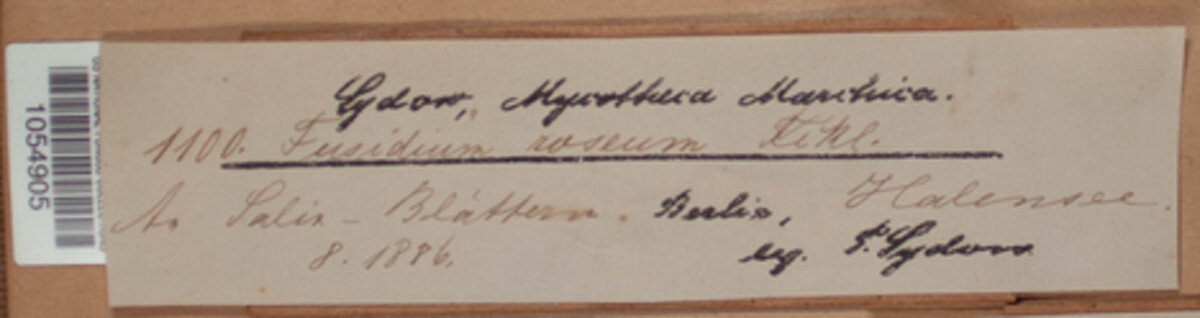 Sydow, Mycotheca Marchica.
1100. Fusidium roseum Fckl.
An Salix-Blättern. Berlin, Halensee.
8. 1886. leg. P. Sydow
1054905